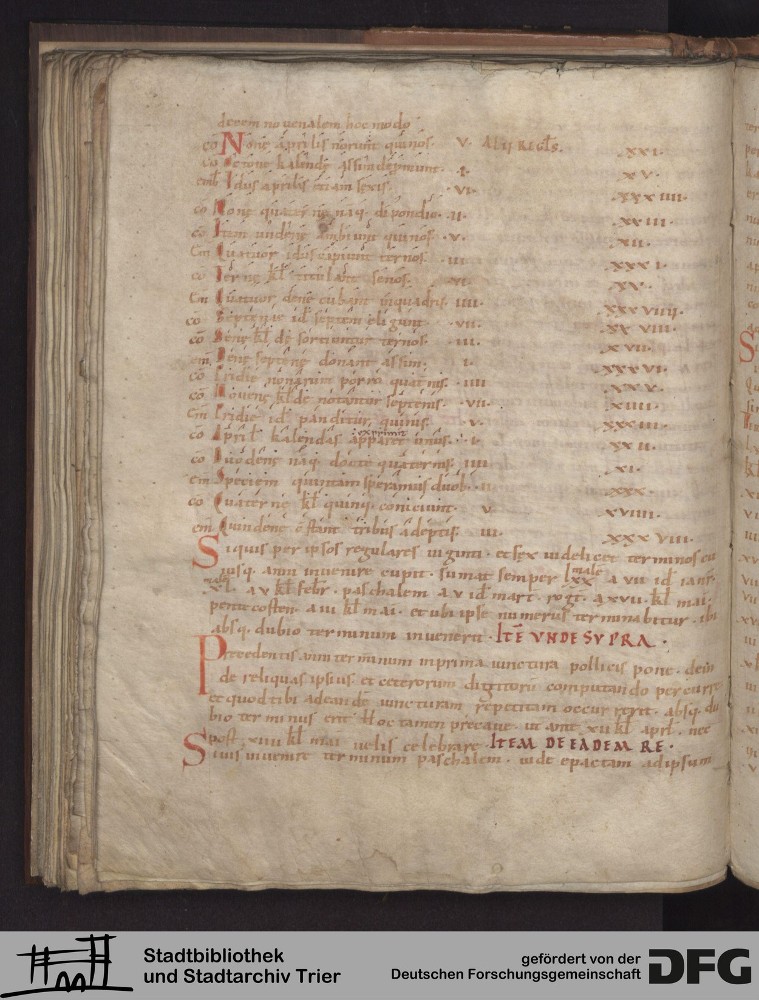 decem nouenalem hoc modo
co Nonę aprilis norunt quinos · V · ALII REGLS. · XXI ·
co kalendę assim depromunt · I · · XV ·
emb Idus aprilis etiam sexis · VI · · XXXIIII ·
co Nonę quaternę naq. dipondio · II · · XXIII ·
co Item undenę ambiunt quinos · V · · XII ·
Em Quatuor idus capiunt ternos · III · · XXXI ·
co Ternę kl titulant senos · VI · · XV ·
Em Quatuor denę cubant in quadris · IIII · · XXXVIIII ·
co Septenę id septem eligunt · VII · · XXVIII ·
co Senę kl dę sortiuntur ternos · III · · XVII ·
em Denę septenę donant assim · I · · XXXVI ·
co Pridie nonarum porro quaternis · IIII · XXV ·
co Nouenę kl de notantor septenis · VII · · XIIII ·
Em Pridie id panditur quinis · V · · XXXIII ·
exprimit
co April kalendas apparet unus · I · · XXII ·
co Duodenę naq. docte quaternis · IIII · XI ·
em Speciem quintam speramus duob. II · XXX ·
co Quaternę kl quinq. coniciunt · V · XVIIII ·
em Quindenę cstant tribus adeptis · III · · XXXVIII ·
Siquis per ipsos regulares uiginti · et sex uidelicet terminos cu
iusq. anni inuenire cupit · sumat semper LXX a VII id ianr ·
male
XL · a V kl febr · paschalem a V id mart · rogt · a XVII · kl mai ·
pentecosten · a III kl mai · et ubi ipse numerus terminabitur · ibi
absq. dubio terminum inuenerit · ITE VNDE SVPRA ·
Precedentis anni terminum in prima iunctura pollicis pone · dein
de reliquas ipsius · et ceterorum digitorum computando percurre
et quod tibi ad eandē iuncturam repetitam occurrerit · absq. du
bio terminus erit · Hoc tamen precaue · ut ante XII kl aprl · nec
post XIIII kl mai uelis celebrare · ITEM DE EADEM RE ·
Siuis inuenire terminum paschalem · uide epactam adipsum
Stadtbibliothek
und Stadtarchiv Trier
gefördert von der
Deutschen Forschungsgemeinschaft
DFG